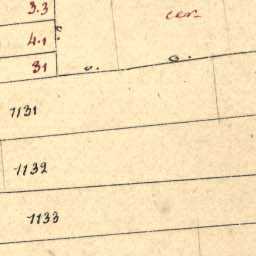 3.3
cer
4.1
31
1131
1132
1133